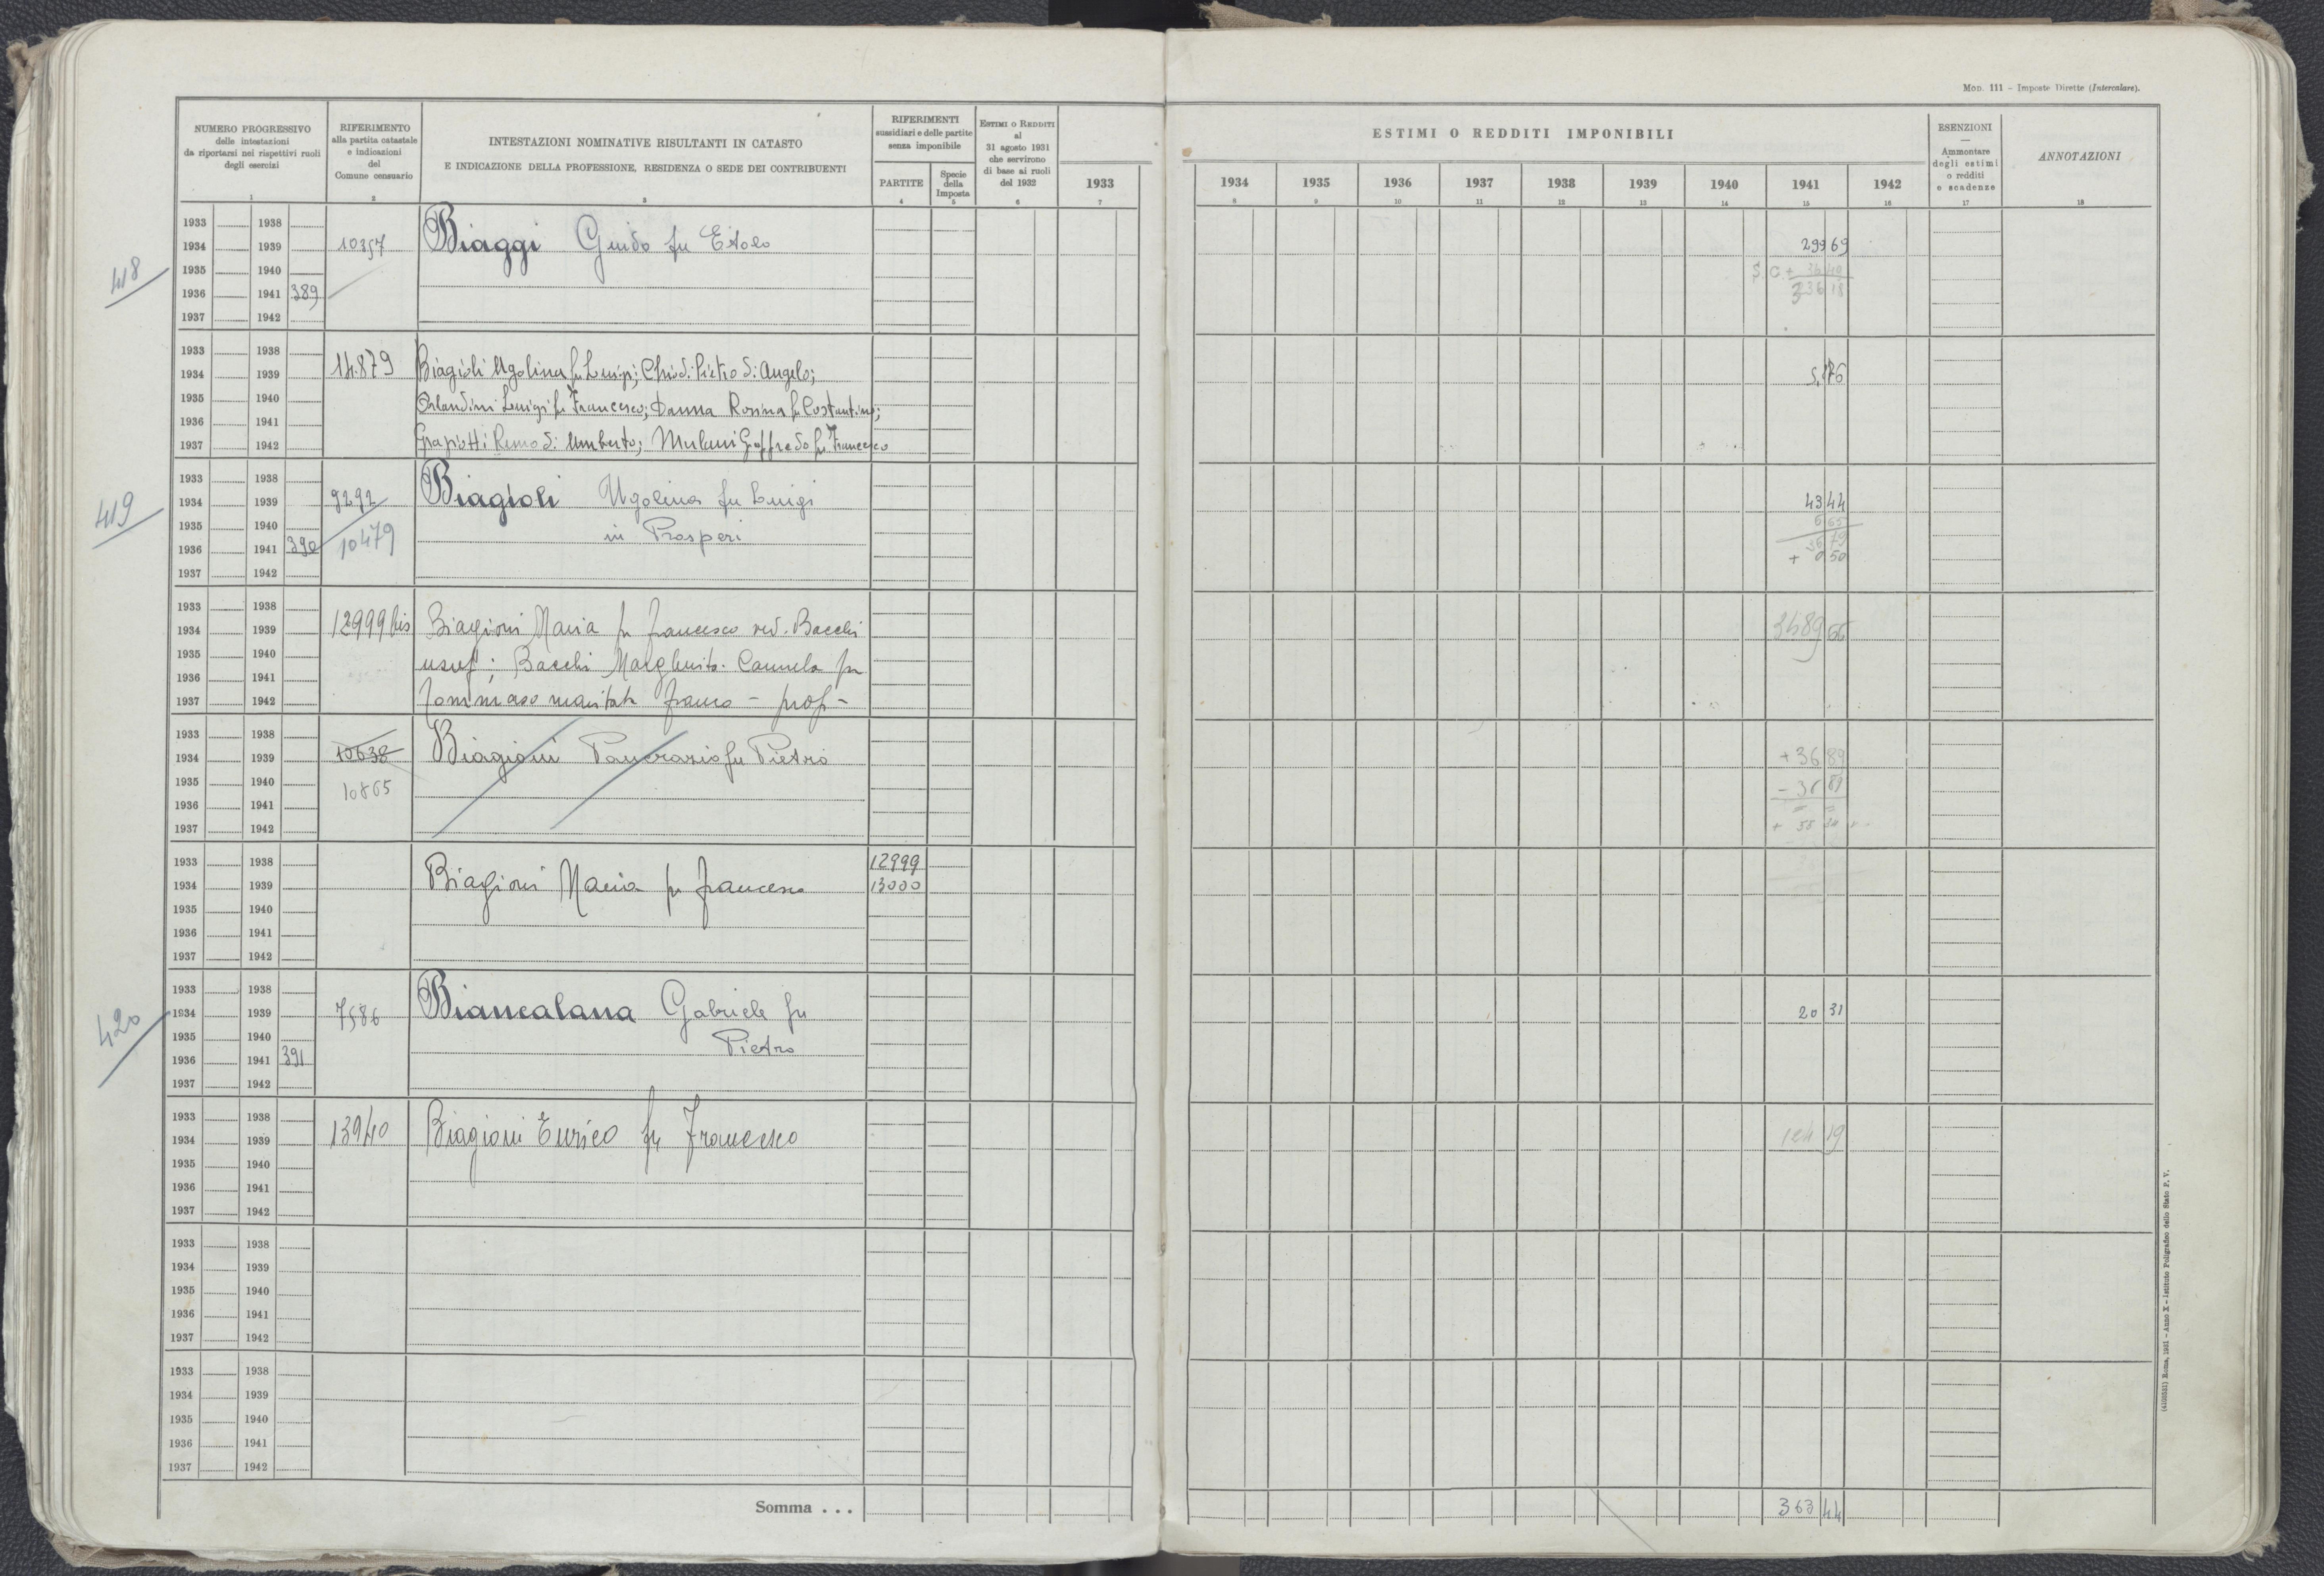 Mod. 111 – Imposte Dirette (Intercalare).
NUMERO PROGRESSIVO
delle intestazioni
da riportarsi nei rispettivi ruoli
degli esercizi
1
RIFERIMENTO
alla partita catastale
e indicazioni
del
Comune censuario
2
INTESTAZIONI NOMINATIVE RISULTANTI IN CATASTO
E INDICAZIONE DELLA PROFESSIONE, RESIDENZA O SEDE DEI CONTRIBUENTI
3
RIFERIMENTI
sussidiari e delle partite
senza imponibile
PARTITE
4
Specie
della
Imposta
5
Estimi o Redditi
al
31 agosto 1931
che servirono
di base ai ruoli
del 1932
6
1933
7
ESTIMI O REDDITI IMPONIBILI
1934 1935 1936 1937 1938 1939 1940 1941 1942
8 9 10 11 12 13 14 15 16
ESENZIONI
—
Ammontare
degli estimi
o redditi
e scadenze
17
ANNOTAZIONI
18
418
1933 1938
1934 1939 10357 Biaggi Guido fu Etolo 299 69
1935 1940 S. C. +
1936 1941 389 336 18
1937 1942
1933 1938
1934 1939 14879 Biagioli Ugolina fu Luigi; Chiodi Pietro di Angelo; 5,176
1935 1940 Orlandini Luigi fu Francesco; Danna Rosina fu Costantino;
1936 1941
1937 1942 Graziotti Remo di Umberto; Mulani Goffredo fu Francesco
419
1933 1938
1934 1939 9292 Biagioli Ugolina fu Luigi 43 44
1935 1940 10479 in Prosperi 6 65
1936 1941 390 36 79
+ 0 50
1937 1942
1933 1938
1934 1939 12999 bis Biagioni Maria fu Francesco ved. Bacchi 3489 66
1935 1940 usuf; Bacchi Margherita Carmela fu
1936 1941
1937 1942 Tommaso maritata Franco – prop –
1933 1938
1934 1939 10638 Biagioni Pancrazio fu Pietro + 36 89
1935 1940 10865 – 36 89
1936 1941 = =
1937 1942
1933 1938 12999
1934 1939 Biagioni Maria fu Francesco 13000
1935 1940
1936 1941
1937 1942
420
1933 1938
1934 1939 7586 Biancalana Gabriele fu 20 31
1935 1940 Pietro
1936 1941 391
1937 1942
1933 1938
1934 1939 13940 Biagioni Enrico fu Francesco 124 19
1935 1940
1936 1941
1937 1942
1933 1938
1934 1939
1935 1940
1936 1941
1937 1942
1933 1938
1934 1939
1935 1940
1936 1941
1937 1942
Somma . . . 363 44
(4103551) Roma, 1931 – Anno X – Istituto Poligrafico dello Stato P. V.